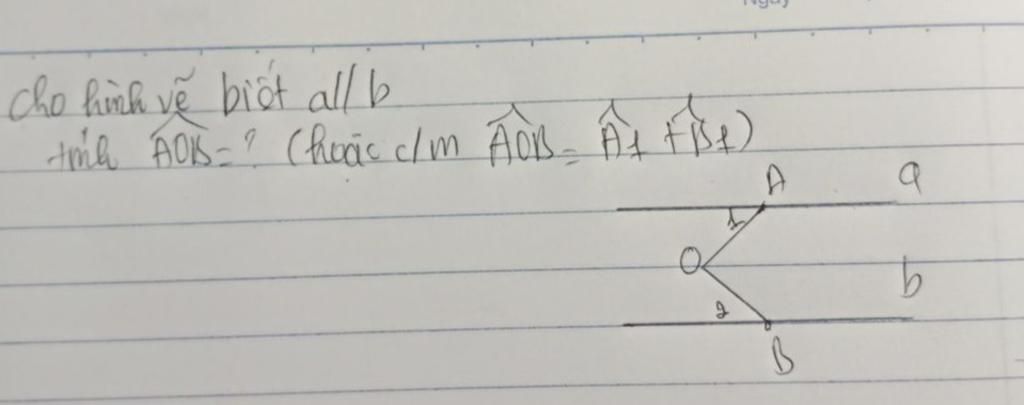 Ngày
Cho hình vẽ biết a//b
tính AOB = ? (hoặc c/m AOB = A1 + B1)
A
a
1
O
b
2
B